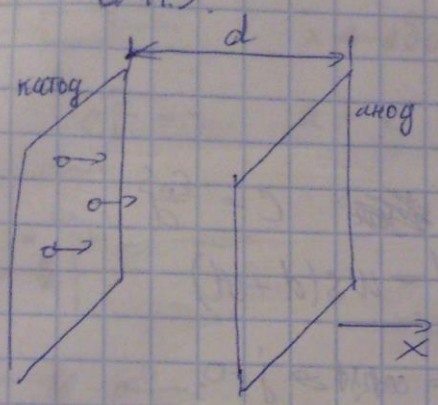 d
катод
анод
X